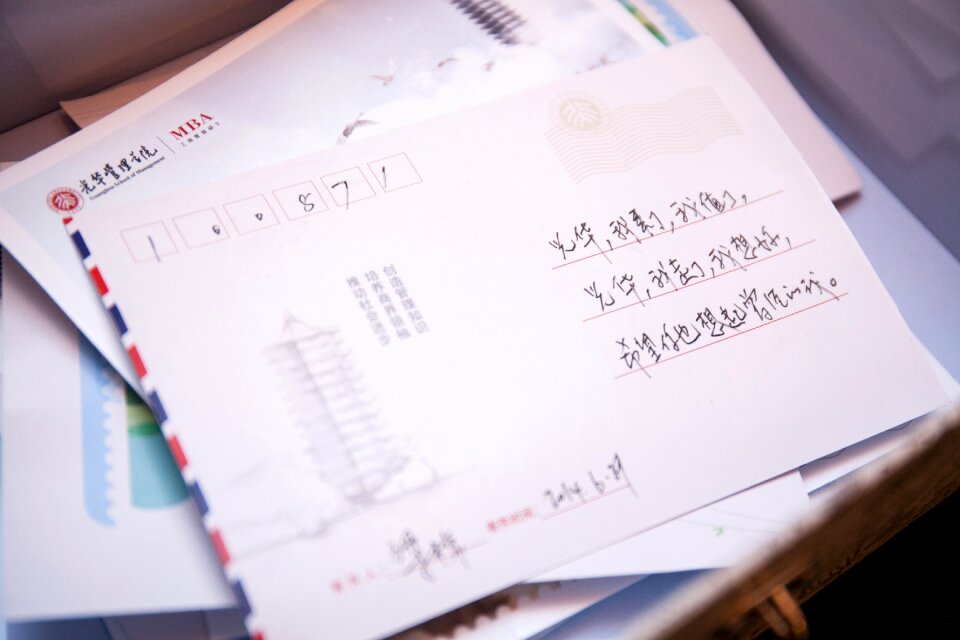 光华管理学院
Guanghua School of Management
MBA
工商管理硕士
100871
光华,我来了,我值了,
光华,我走了,我想
希望你也想起曾经的我。
创造管理知识
培养商界领袖
推动社会进步
时间:
2014.6.